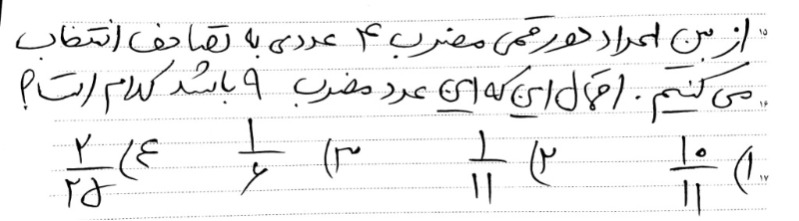 از بین اعداد دورقمی مضرب ۴ عددی به تصادف انتخاب
می‌کنیم. احتمال این که این عدد مضرب ۹ باشد کدام است؟
۱) ۱۰/۱۱ ۲) ۱/۱۱ ۳) ۱/۶ ۴) ۲/۲۵